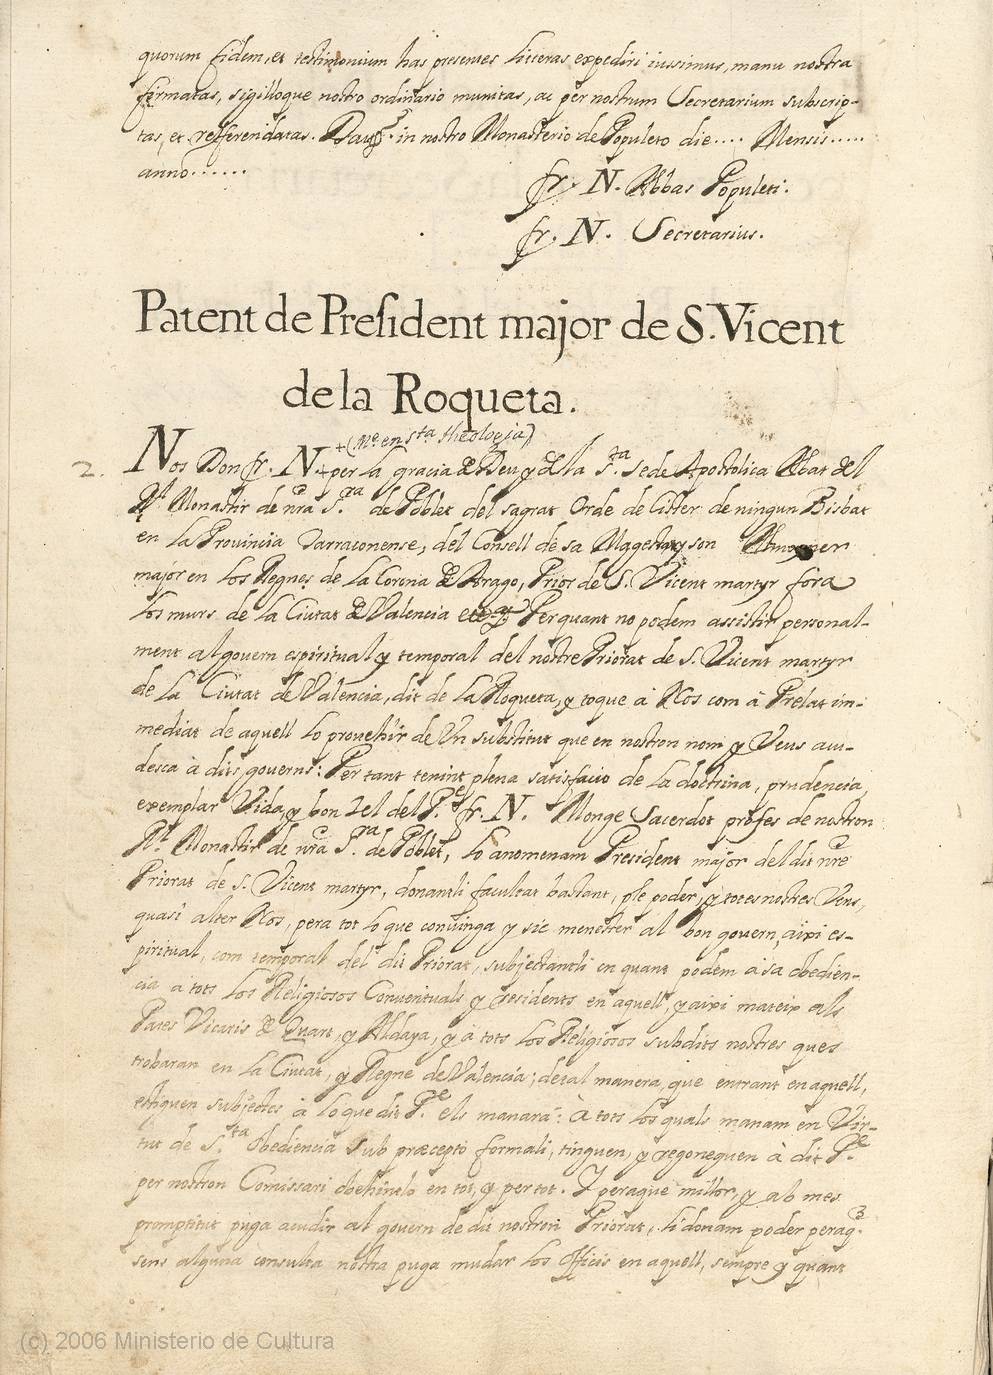 quorum fidem, et testimonium has presentes litteras expediri iussimus, manu nostra
firmatas, sigilloque nostro ordinario munitas, ac per nostrum Secretarium subscrip-
tas, et refferendatas. Dattis in nostro Monasterio de Populeto die.... Mensis.....
anno......
fr. N. Abbas Populeti.
fr. N. Secretarius.
Patent de President major de S. Vicent
de la Roqueta.
+(Mº en sta theologia)
2. Nos Don fr. N.+ per la gracia de Deu y de la S.ta Sede Apostolica Abat del
Rl Monastir de nra S.ra de Poblet del sagrat Orde de Cister de ningun Bisbat
en la Provincia Tarraconense, del Consell de sa Magestat y son Almoyner
major en los Regnes de la Corona de Arago, Prior de S. Vicent martyr fora
los murs de la Ciutat de Valencia Per quant no podem assistir personal-
ment al govern espiritual y temporal del nostre Priorat de S. Vicent martyr
de la Ciutat de Valencia, dit de la Roqueta, y toque à Nos com à Prelat im-
mediat de aquell lo provehir de Vn substitut que en nostron nom y Veus acu-
desca à dits governs: Per tant tenint plena satisfacio de la doctrina, prudencia,
exemplar Vida, y bon zel del P.e fr. N. Monge Sacerdot profes de nostron
Rl Monastir de nra S.ra de Poblet, lo anomenam President major del dit nre
Priorat de S. Vicent martyr, donantli facultat bastant, ple poder, y totes nostres Veus,
quasi alter Nos, pera tot lo que convinga y sie menester al bon govern, aixi es-
piritual, com temporal del dit Priorat, subjectantli en quant podem à sa obedien-
cia à tots los Religiosos Conventuals y residents en aquell, y aixi mateix als
Pares Vicaris de Quart, y Aldaya, y à tots los Religiosos subdits nostres ques
trobaran en la Ciutat, y Regne de Valencia; de tal manera, que entrant en aquell,
estiguen subjectes à lo que dit P.e els manarà: à tots los quals manam en Vir-
tut de S.ta Obediencia sub præcepto formali, tinguen, y regoneguen à dit P.e
per nostron Comissari obehintlo en tot, y per tot. I peraque millor, y ab mes
promptitut puga acudir al govern de dit nostron Priorat, li donam poder peraq.
sens alguna consulta nostra puga mudar los Officis en aquell, sempre y quant
(c) 2006 Ministerio de Cultura